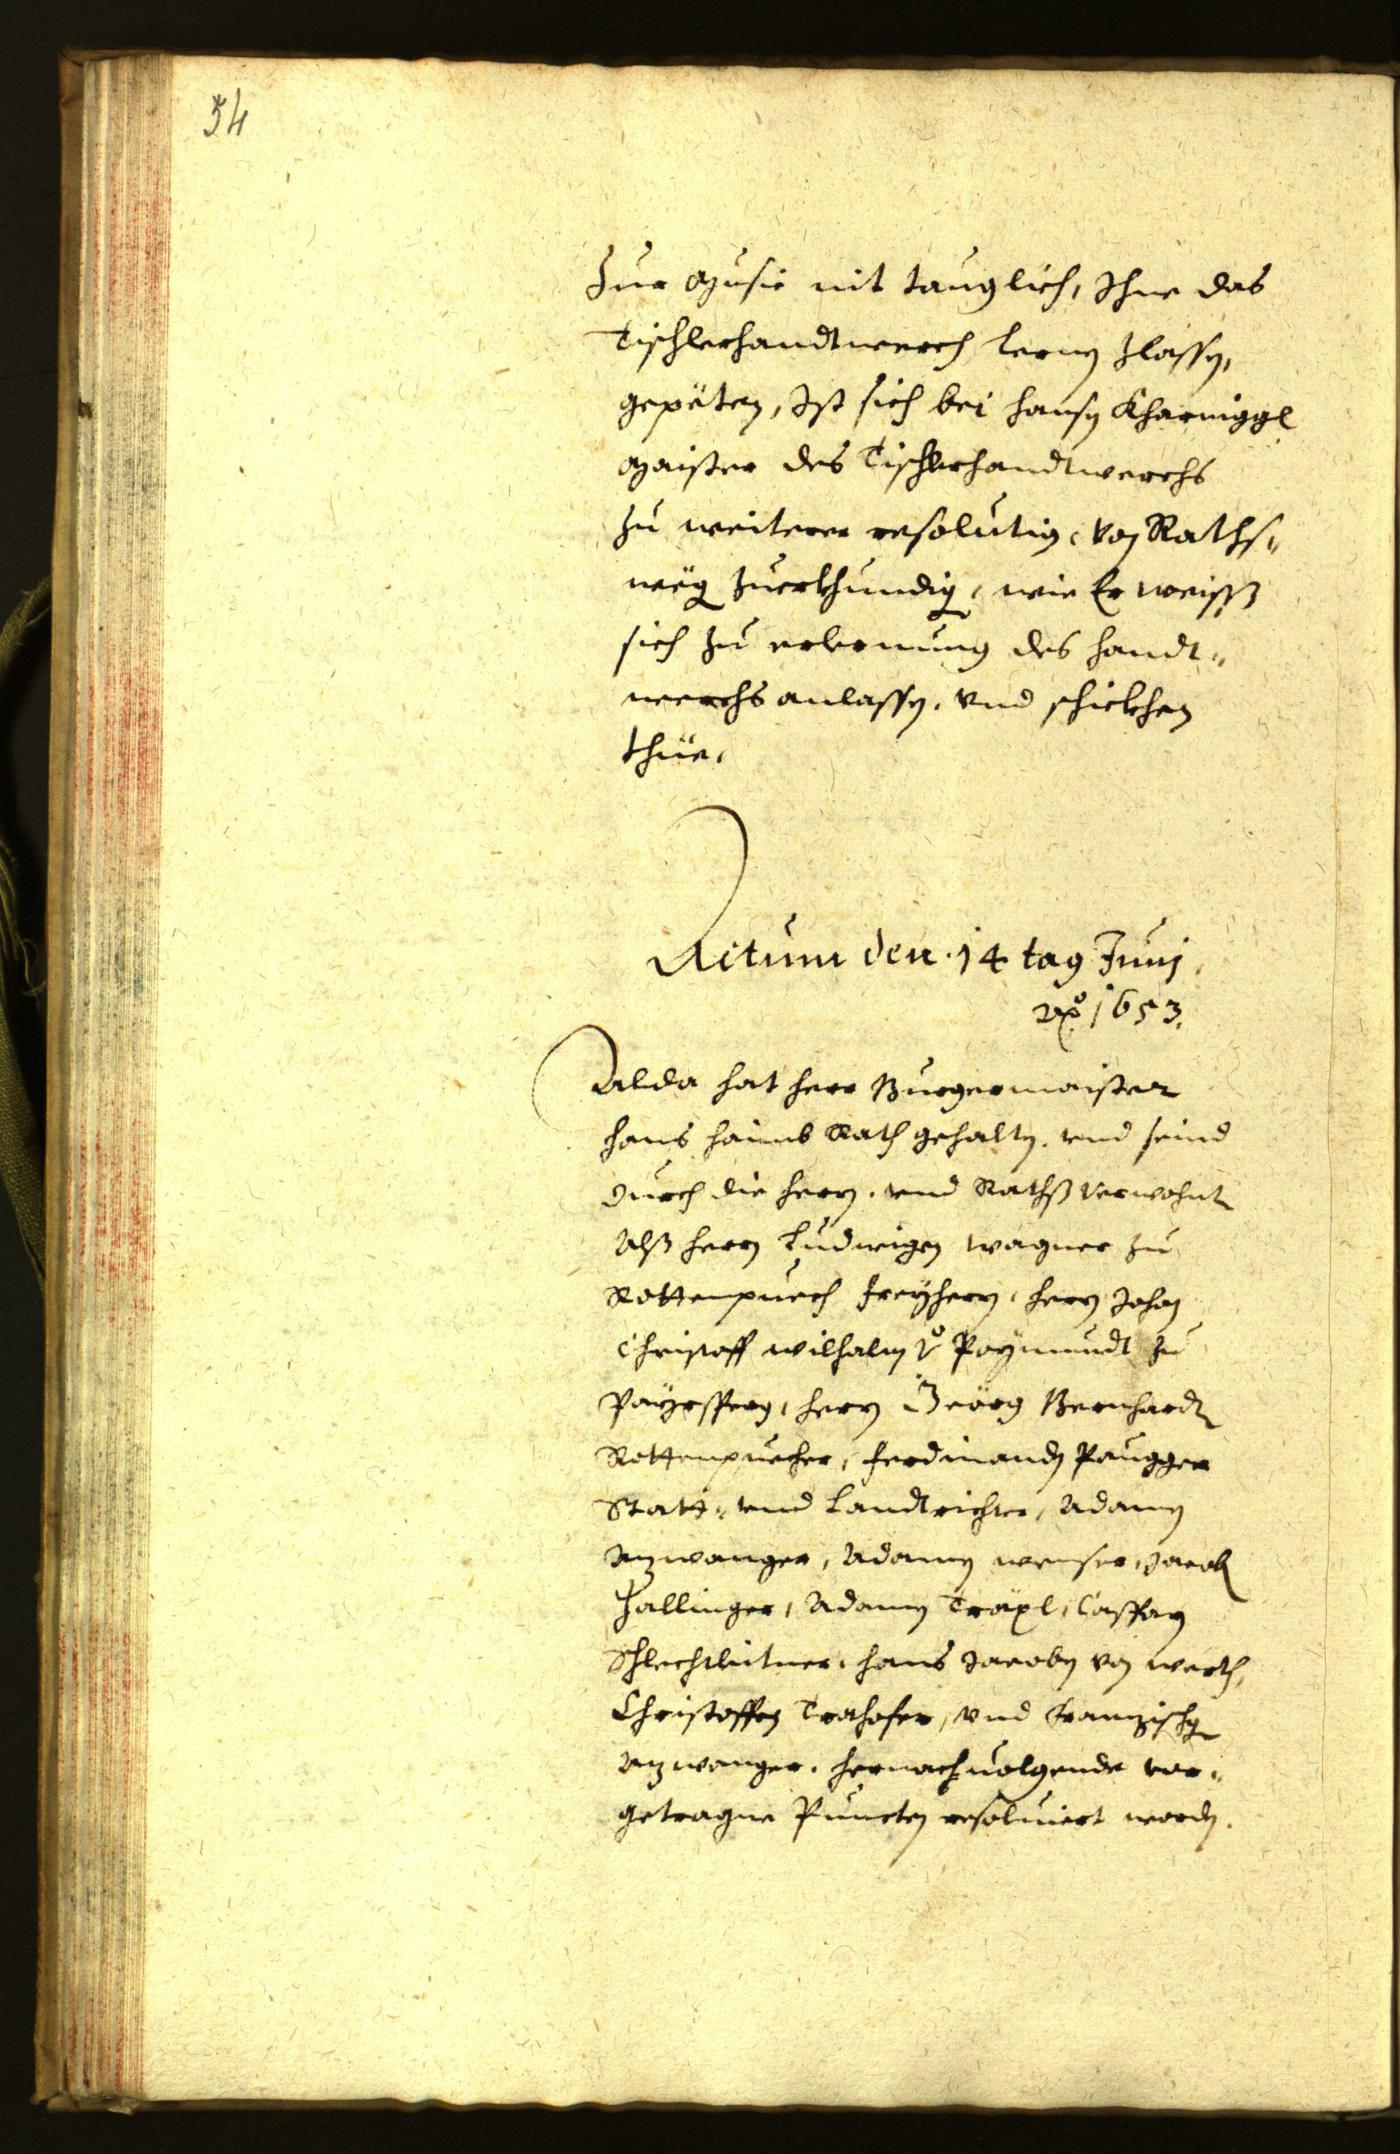 54
Zur Music nit tauglich, Ihne das
Tischlerhandtwerch lernen zlassen,
gepëten, Ist sich bei Hansen Kharniggl
Maister des Tischlerhandtwerchs
zu weiterer resolution, von Raths„
wëg zuerkhundig, wie Er weiss
sich zu erlernung des handt„
werchs anlassen, vnd schickhen
thüe,
Actum den 14 tag Junj
Ao 1653.
Alda hat herr Burgermaister
Hans Haimb Rath gehalten, vnd seind
durch die herrn, vnd Raths verwohnt
Alß herrn Ludwigen Wagner zu
Rottenpuech Freyherrn, herrn Johan
Christoff Wilhalm vo Paymundt zu
Payrsperg, herrn Geörg Bernhardt
Rottenpuecher, Ferdinanden Paugger
Statt- vnd Landtrichter, Adamen
Anzwanger, Adamen Wenser, Jacob
Hallinger, Adamen Träxl, Casparn
Schlechtleitner, Hans Jacoben von Werth,
Christoffen Trohofer, vnd Franzischgen
Anzwanger, hernachuolgende vor„
getragne Puncten resoluiert worden.